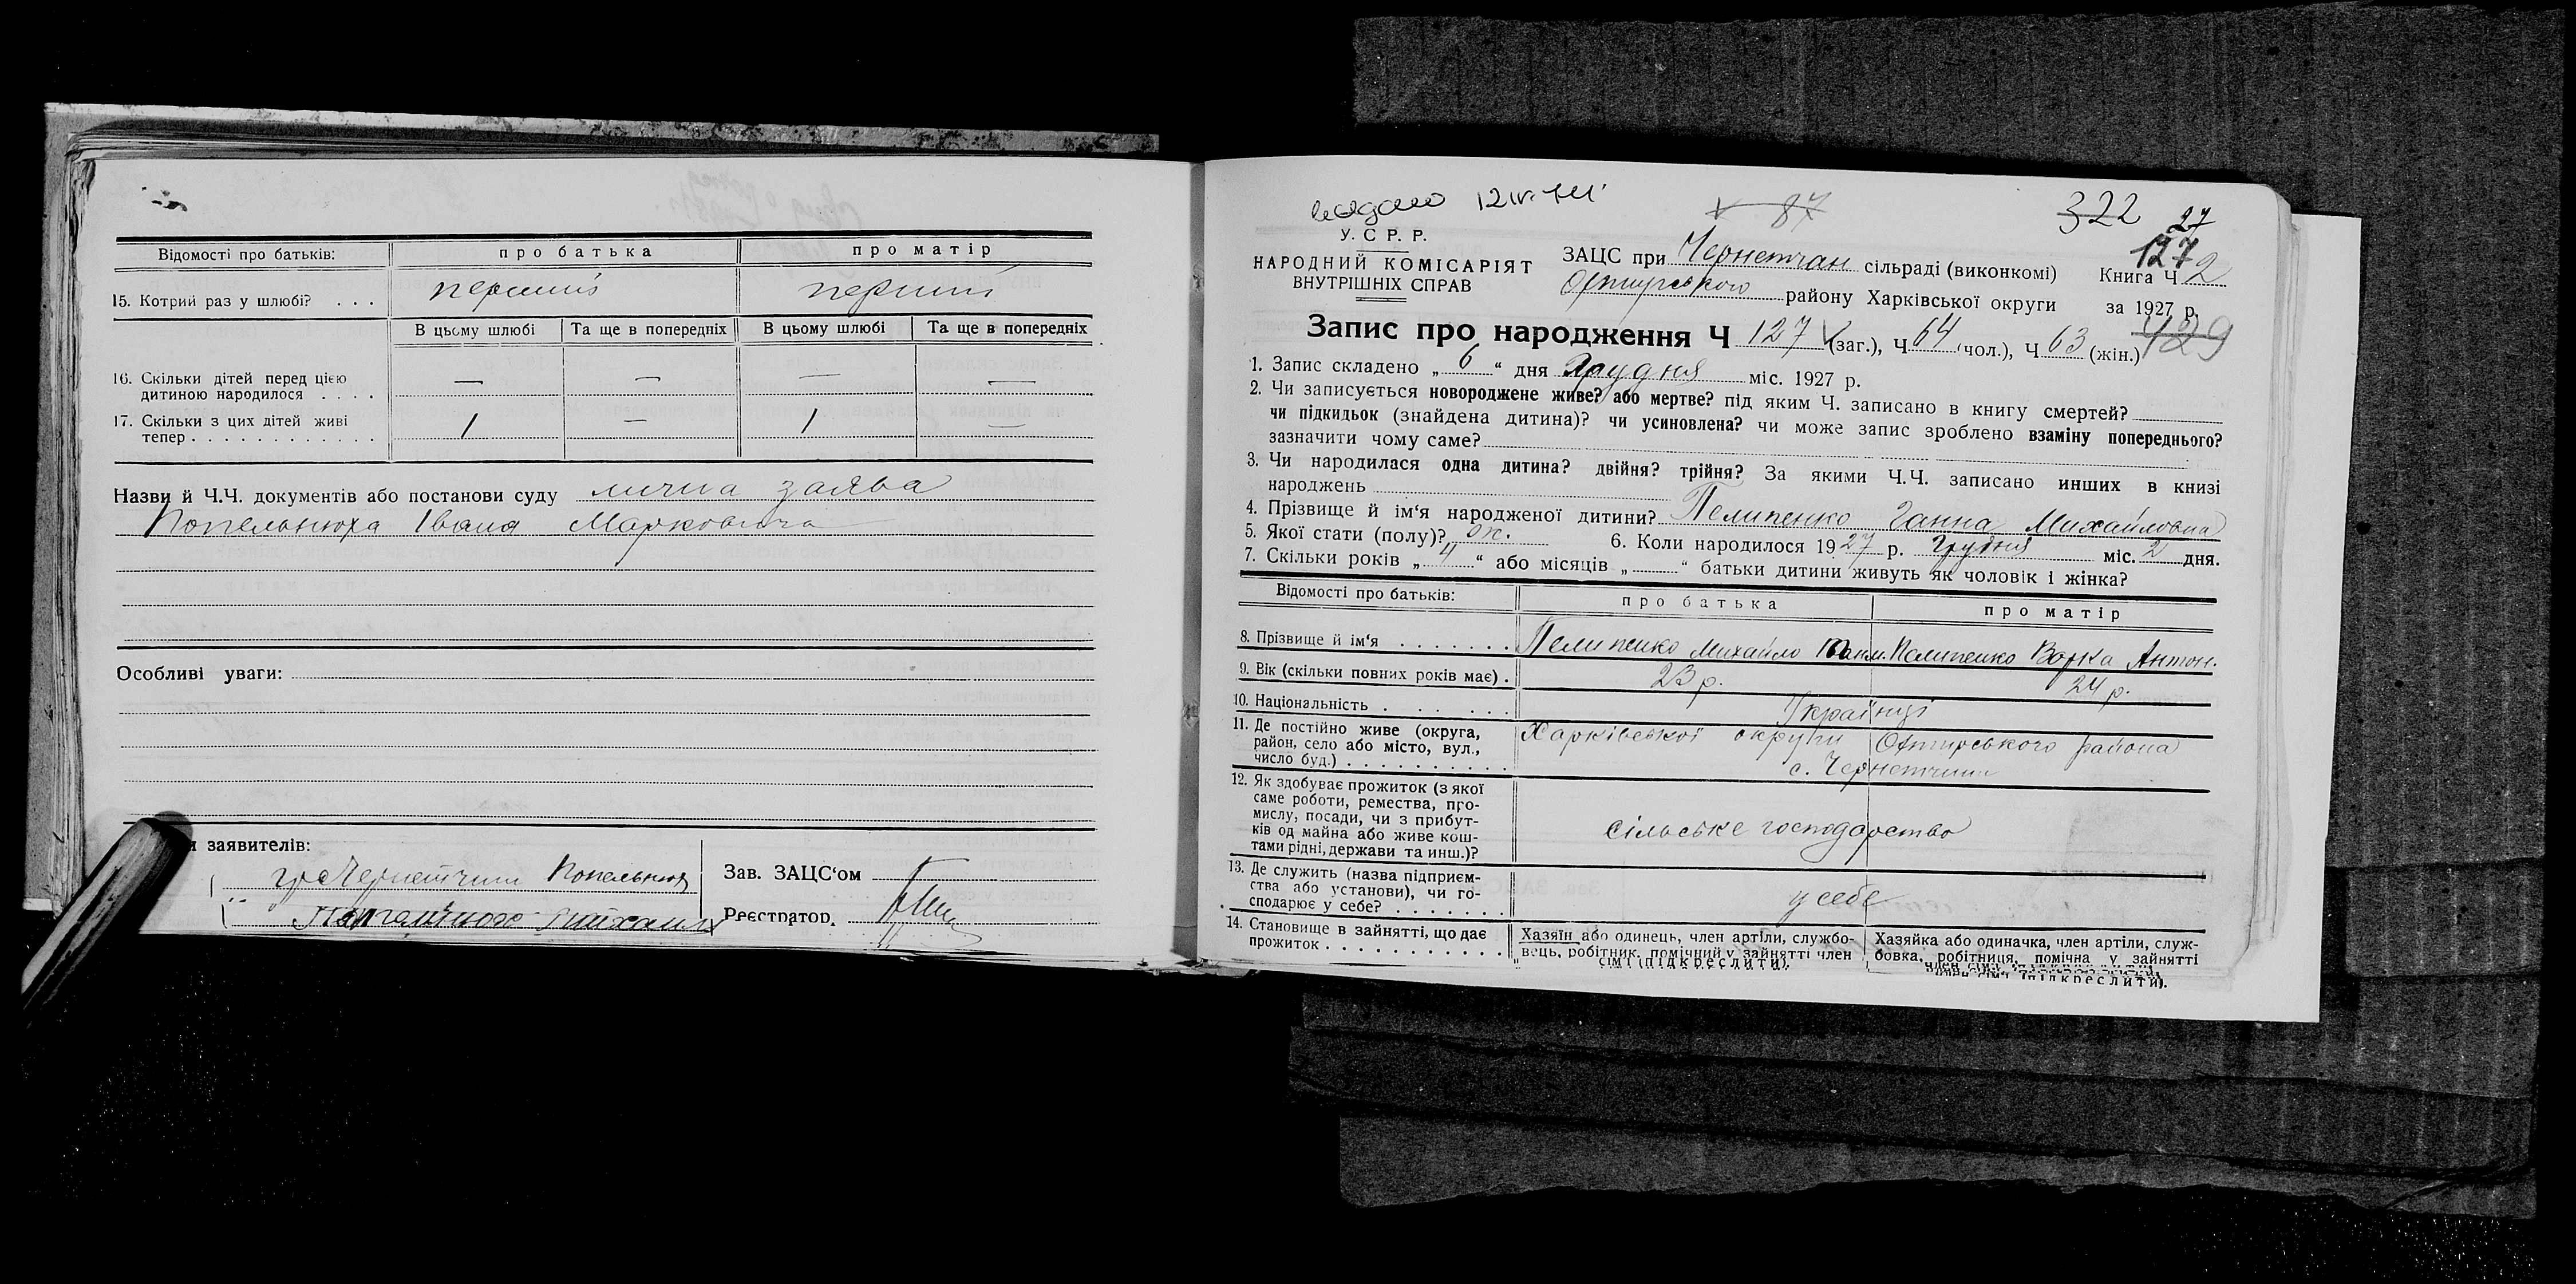 Відомості про батьків: про батька про матір
15. Котрий раз у шлюбі? . . . перший перший
В цьому шлюбі Та ще в попередніх В цьому шлюбі Та ще в попередніх
16. Скільки дітей перед цією
дитиною народилося . . . . — — — —
17. Скільки з цих дітей живі
тепер . . . . . . . . . . . . . 1 — 1 —
Назви й Ч.Ч. документів або постанови суду лична заява
Попельнюха Івана Марковича
Особливі уваги:
заявителів:
гр. Чернетчини Попельнюх
Зав. ЗАЦС'ом
Реєстратор.
322 27
87
127
У. С Р. Р.
НАРОДНИЙ КОМІСАРІЯТ
ВНУТРІШНІХ СПРАВ
ЗАЦС при Чернетчан сільраді (виконкомі) Книга Ч 2
Охтирського району Харківської округи за 1927 р.
129
Запис про народження Ч 127 (заг.), Ч 64 (чол.), Ч 63 (жін.)
1. Запис складено „ 6 “ дня Грудня міс. 1927 р.
2. Чи записується новороджене живе? або мертве? під яким Ч. записано в книгу смертей?
чи підкидьок (знайдена дитина)? чи усиновлена? чи може запис зроблено взаміну попереднього?
зазначити чому саме?
3. Чи народилася одна дитина? двійня? трійня? За якими Ч.Ч. записано инших в книзі
народжень
4. Прізвище й ім'я народженої дитини? Пелипенко Ганна Михайловна
5. Якої стати (полу)? ж. 6. Коли народилося 1927 р. Грудня міс. 2 дня.
7. Скільки років „ 4 “ або місяців „ “ батьки дитини живуть як чоловік і жінка?
Відомості про батьків: про батька про матір
8. Прізвище й ім'я . . . . . . . Пелипенко Михайло Пелипенко Варка Антон.
9. Вік (скільки повних років має) . 23 р. 24 р.
10. Національність . . . . . Українці
11. Де постійно живе (округа,
район, село або місто, вул.,
число буд.) . . . . . . . . . . .
Харківської округи Охтирського района
с. Чернетчини
12. Як здобуває прожиток (з якої
саме роботи, ремества, про-
мислу, посади, чи з прибут-
ків од майна або живе кош-
тами рідні, держави та инш.)?
сільське господарство
13. Де служить (назва підприєм-
ства або установи), чи го-
сподарює у себе? . . . . . . .
у себе
14. Становище в зайнятті, що дає
прожиток . . . . . . . . . .
Хазяїн або одинець, член артіли, службо-
вець, робітник, помічний у зайнятті член
сім'ї (підкреслити).
Хазяйка або одиначка, член артіли, служ-
бовка, робітниця, помічна у зайнятті
член сім'ї (підкреслити).